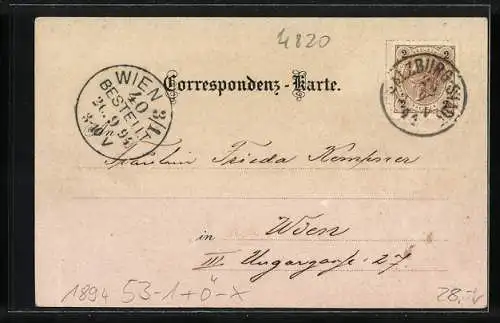 4820
WIEN 3/1
40
BESTELLT
9.94
V
Correspondenz-Karte.
2 2
SALZBURG-STADT
Fräulein Frieda Kempner
in Wien
III Ungargasse 27.
1894 53-1+Ö-X
28,-